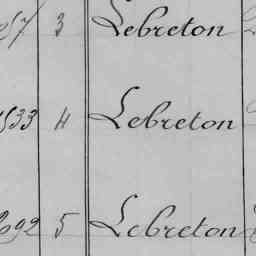 3 Lebreton
1533 4 Lebreton
2092 5 Lebreton